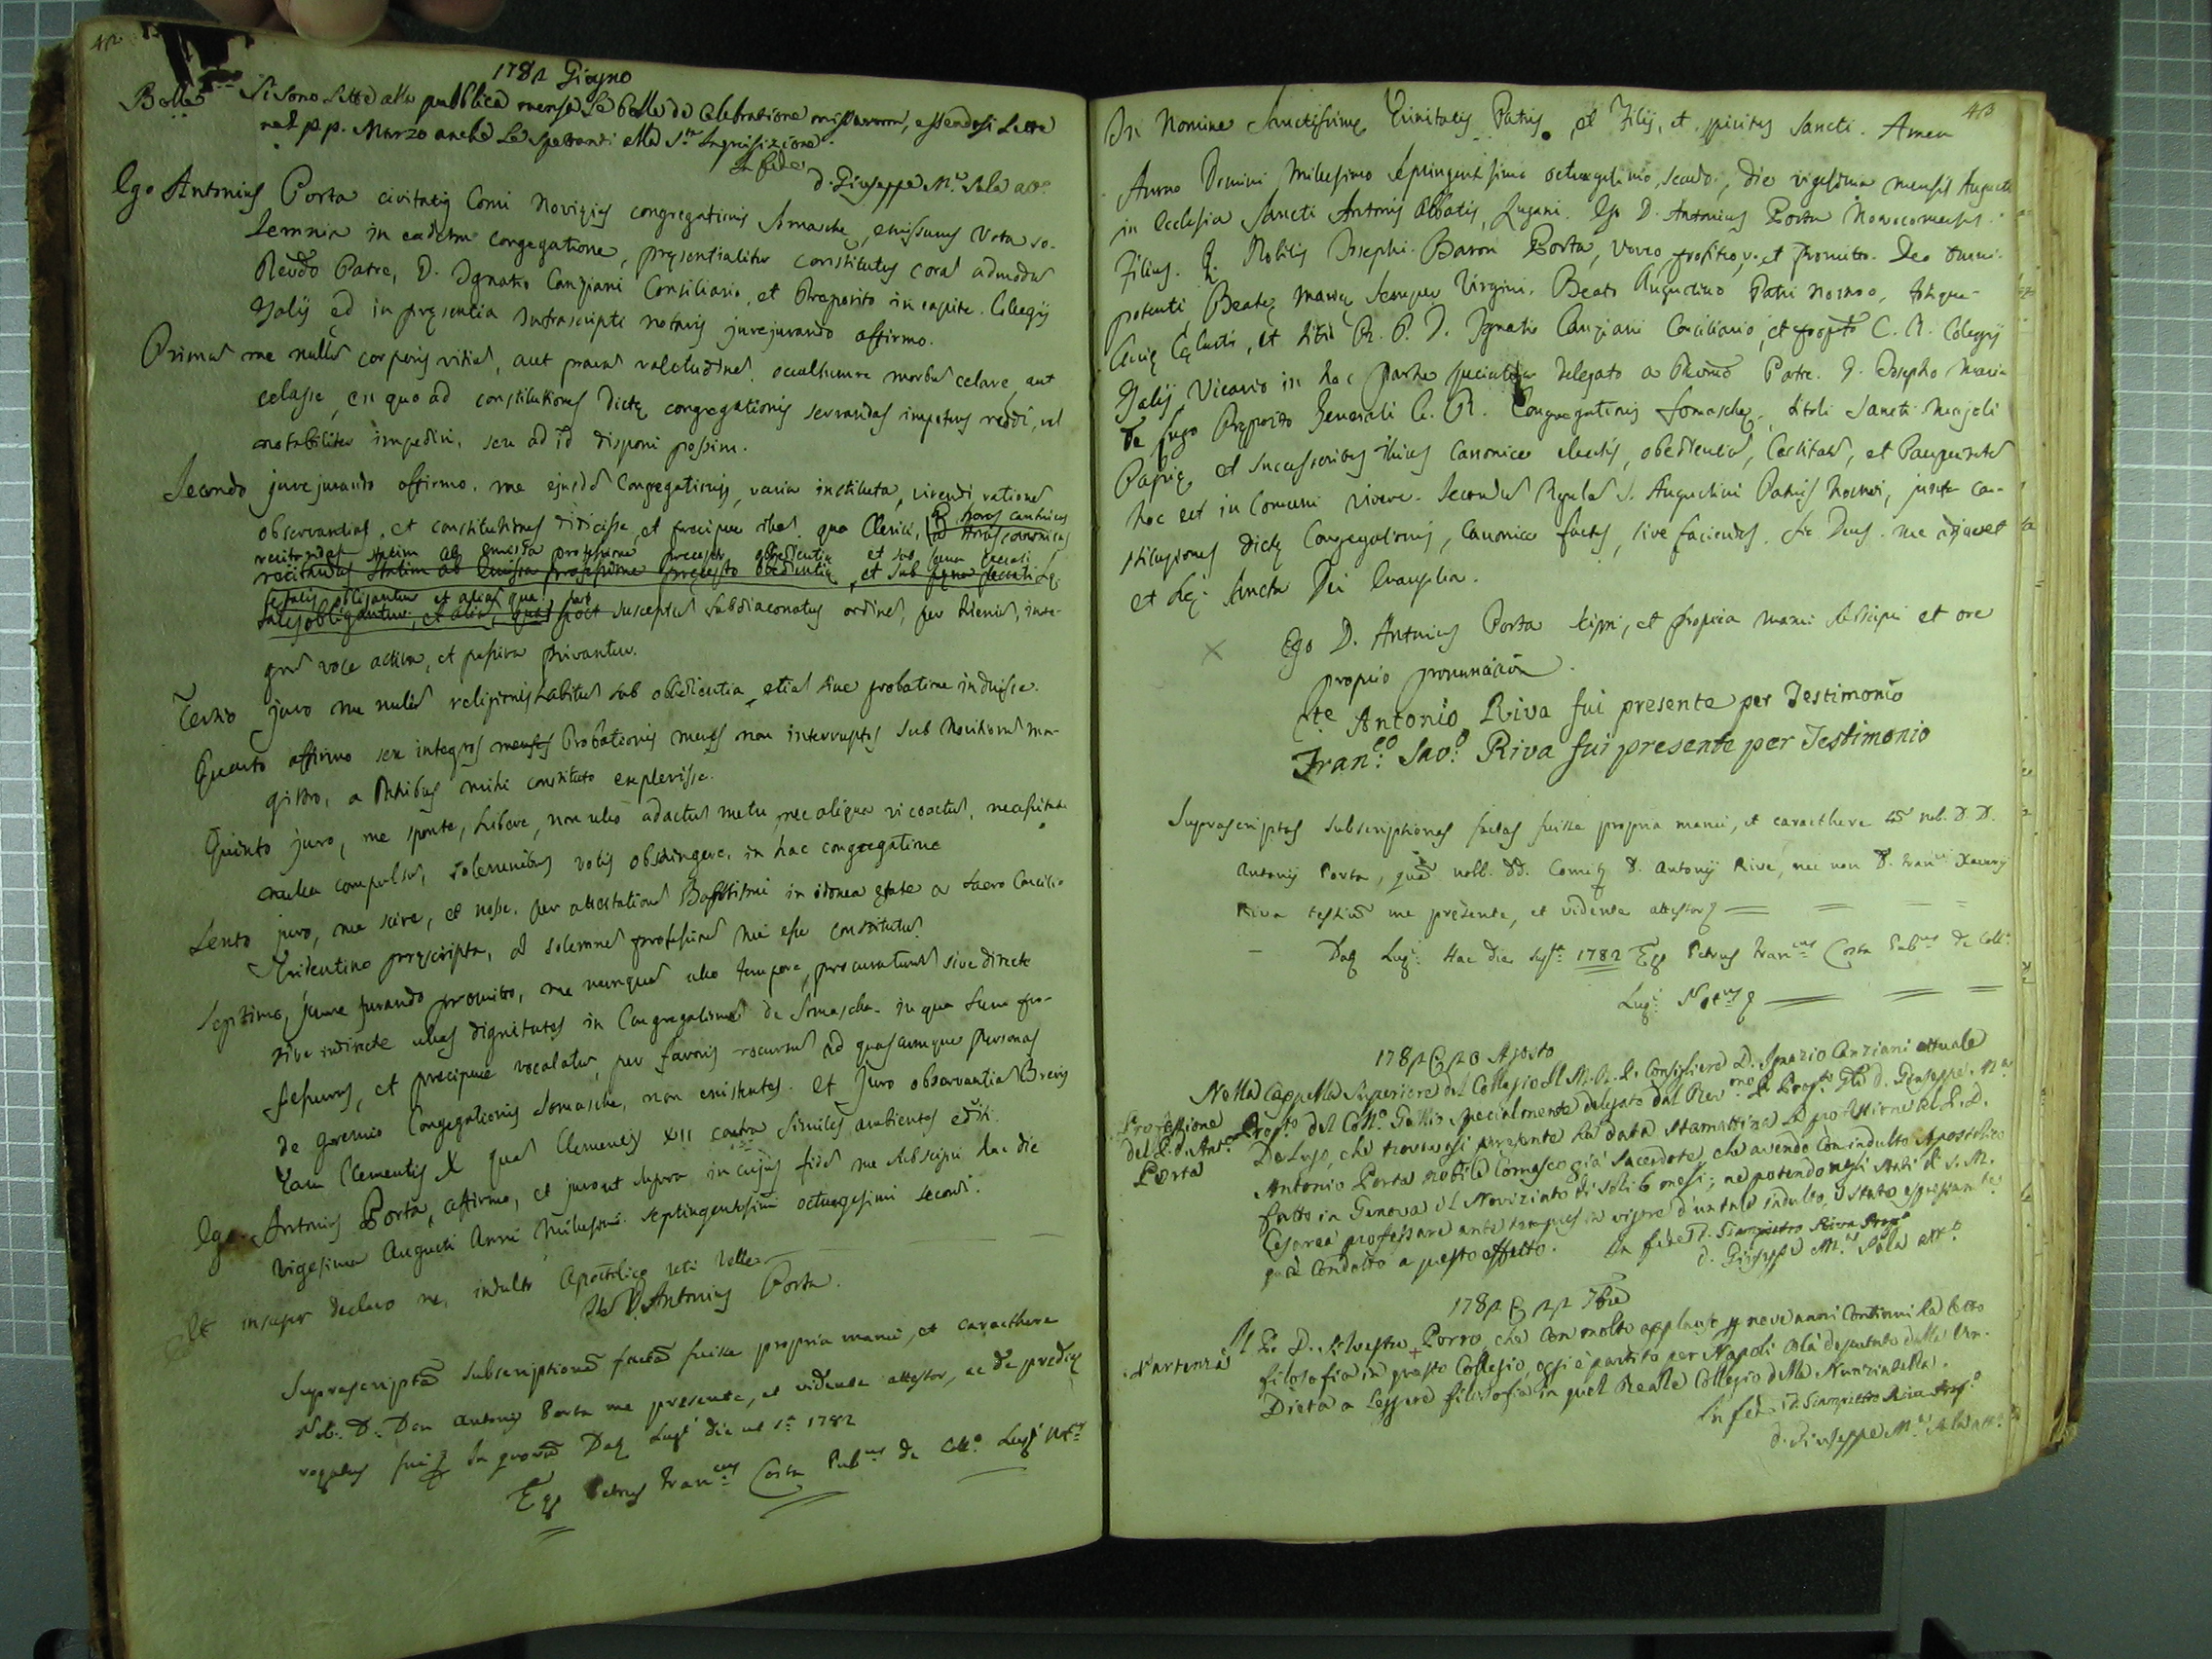 42
1782 Giugno
Bolle Si sono lette alla pubblica mensa le bolle de Celebratione missarum, essendosi lette
nel p.p. Marzo anche le spettanti alla S.ta Inquisizione.
In fede
D. Giuseppe M.a Sala att.o
Ego Antonius Porta civitatis Comi Novizius congregationis Somasche, emissurus Vota so-
lemnia in eadem congregatione, presentialiter constitutus coram admodum
Revdo Patre, D. Ignatio Canziani Consiliario, et Preposito in capite Collegij
Galij ed in presentia infrascripti notarij jurejurando affirmo.
Primum me nullum corporis vitium, aut pravam valetudinem, occultumve morbum celare, aut
celasse, ex quo ad constitutiones dicte congregationis servandas impotens reddi, vel
notabiliter impediri, seu ad id disponi possim.
Secondo jurejurando affirmo, me ejusdem Congregationis, varia instituta, vivendi rationem
observandam, et constitutiones didicisse, et precipue illam qua Clerici, ad horas canonicas
recitandas statim ab emissa professione precepto obedientie et sub pena peccati
recitandas statim ab emissa professione precepto obedientie, et sub pena peccati Le-
letalis obligantur et aliam qua post
talis obligantur, et aliam, qua post susceptum subdiaconatus ordinem, per bienium, inte-
grum voce activa, et passiva privantur.
Tertio juro me nullum religionis habitum sub obedientia, etiam sine probatione induisse.
Quarto affirmo sex integros menses Probationis menses non interruptos sub Novitiorum ma-
gistro, a Patribus mihi constituto explevisse.
Quinto juro, me sponte, libere, non ullo adactum metu, nec aliqua vi coactum, necessitate
nulla compulsum, solemnibus votis obstringere in hac congregatione
Sexto juro, me scire, et nosse, per attestationem Baptismi in idonea etate a Sacro Concilio
Tridentino prescripta, ad solemnem professionem me esse constitutum.
Septimo, jure jurando promitto, me nunquam ullo tempore, procuraturum sive directe
sive indirecte ullas dignitates in Congregatione de Somascha, in qua sum pro-
fessurus, et precipue vocalatum, per favoris recursum ad quascumque personas
de gremio Congregationis Somasche, non existentes. et juro observantiam Brevis
tam Clementis X quam Clementis XII contra similes ambientes editi.
Ego Antonius Porta, affirmo, et juro ut supra, in cujus fidem me subscripsi hac die
vigesima Augusti Anni Milesimi septingentesimi octuagesimi secondi.
Et insuper declaro me, indulto Apostolico uti velle
Ita D. Antonius Porta.
Suprascriptam subscriptionem factam fuisse propria manu, et caracthere
Nob. D. Don Antonij Porta me presente, et vidente attestor, ac de predictis
rogatus fui In quorum Dat Lugi die ut s.a 1782
Ego Petrus Fran.cus Costa Pub.cus de Coll.o Lugi Not.us
43
In Nomine Sanctissime Trinitatis Patris, et Filij, et spiritus Sancti. Amen
Anno Domini Milesimo septingentesimo octuagesimo, secondo, die vigesima mensis Augusti
in Ecclesia Sancti Antonij Abbatis, Lugani. Ego D. Antonius Porta Novocomensis
Filius Q. Nobilis Josephi Baron Porta, voveo profiteor, et promitto Deo omni-
potenti Beate Marie Semper Virgini, Beato Augustino Patri Nostro, totique
Curie Celesti, et tibi R. P. D. Ignatio Canziani Consiliario, et prop.to C. R. Collegij
Galij Vicario in hac parte specialiter delegato a Revmo Patre D. Josepho Maria
de Lugo Preposito Generali C. R. Congregationis Somasche, tituli Sancti Majoli
Papie, et Successoribus illius canonice electis, obedientiam, Castitatem, et Paupertatem
hoc est in Comuni vivere secundum Regulam S. Augustini Patris Nostri, juxta con-
stitutiones dicte Congregationis, Canonice factas, sive faciendas. sic Deus me adjuvet
et hec Sancta Dei Evangelia.
Ego D. Antonius Porta scripsi, et propria manu subscripsi et ore
proprio pronunciavi.
C.te Antonio Riva fui presente per Testimonio
Fran.co Sav.o Riva fui presente per Testimonio
Suprascriptas subscriptiones factas fuisse propria manu, et caracthere nob. D. D.
Antonij Porta, nobb. DD. Comitis D. Antonij Rive, nec non D. Fran.ci Xaverij
Riva testium me presente, et vidente attestor
Dat Lugi Hac die 1782 Ego Petrus Fran.cus Costa Pub.cus de Coll.o
Lugi Not.us
1782 20 Agosto
Nella Cappella Superiore del Collegio Il M. R. P. Consigliere D. Ignazio Canziani attuale
Professione Prop.to del Coll.o Gallio specialmente delegato dal Rev.mo P. Prop.to Gle D. Giuseppe M.a
del P. D. Ant.o De Lugo, che trovavasi presente ha data stamattina la professione al P. D.
Porta Antonio Porta nobile Comasco già Sacerdote, che avendo con indulto Apostolico
fatto in Genova il Noviziato di soli 6 mesi; ne potendo negli Stati di S. M.
Cesarea professare ante tempus in vigore d'un tale indulto, è stato espressamente
quà condotto a questo effetto. In fede D. Giampietro Riva Prop.o
D. Giuseppe M.a Sala att.o
1782 22 7bre
Partenza Il P. D. Silvestro Porro, che con molto applauso p nove anni continui ha letto
filosofia in questo Collegio, oggi è partito per Napoli colà deputato dalla Ven.
Dieta a leggere filosofia in quel Reale Collegio della Nunziatella.
In fede D. Giampietro Riva Prop.o
D. Giuseppe M.a Sala att.o